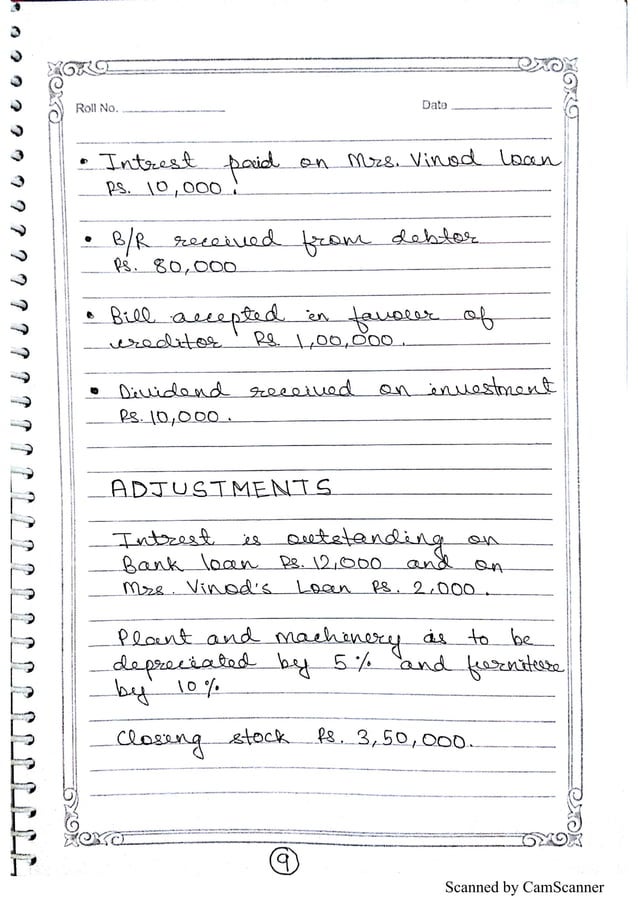 Roll No.
Date
• Intrest paid on Mrs. Vinod loan
Rs. 10,000.
• B/R received from debtor
Rs. 80,000
• Bill accepted in favouer of
creditor Rs. 1,00,000.
• Dividend received on investment
Rs. 10,000.
ADJUSTMENTS
Intrest is outstanding on
Bank loan Rs. 12,000 and on
Mrs. Vinod's Loan Rs. 2,000.
Plant and machinery is to be
depreciated by 5% and furniture
by 10%
Closing stock Rs. 3,50,000.
9
Scanned by CamScanner